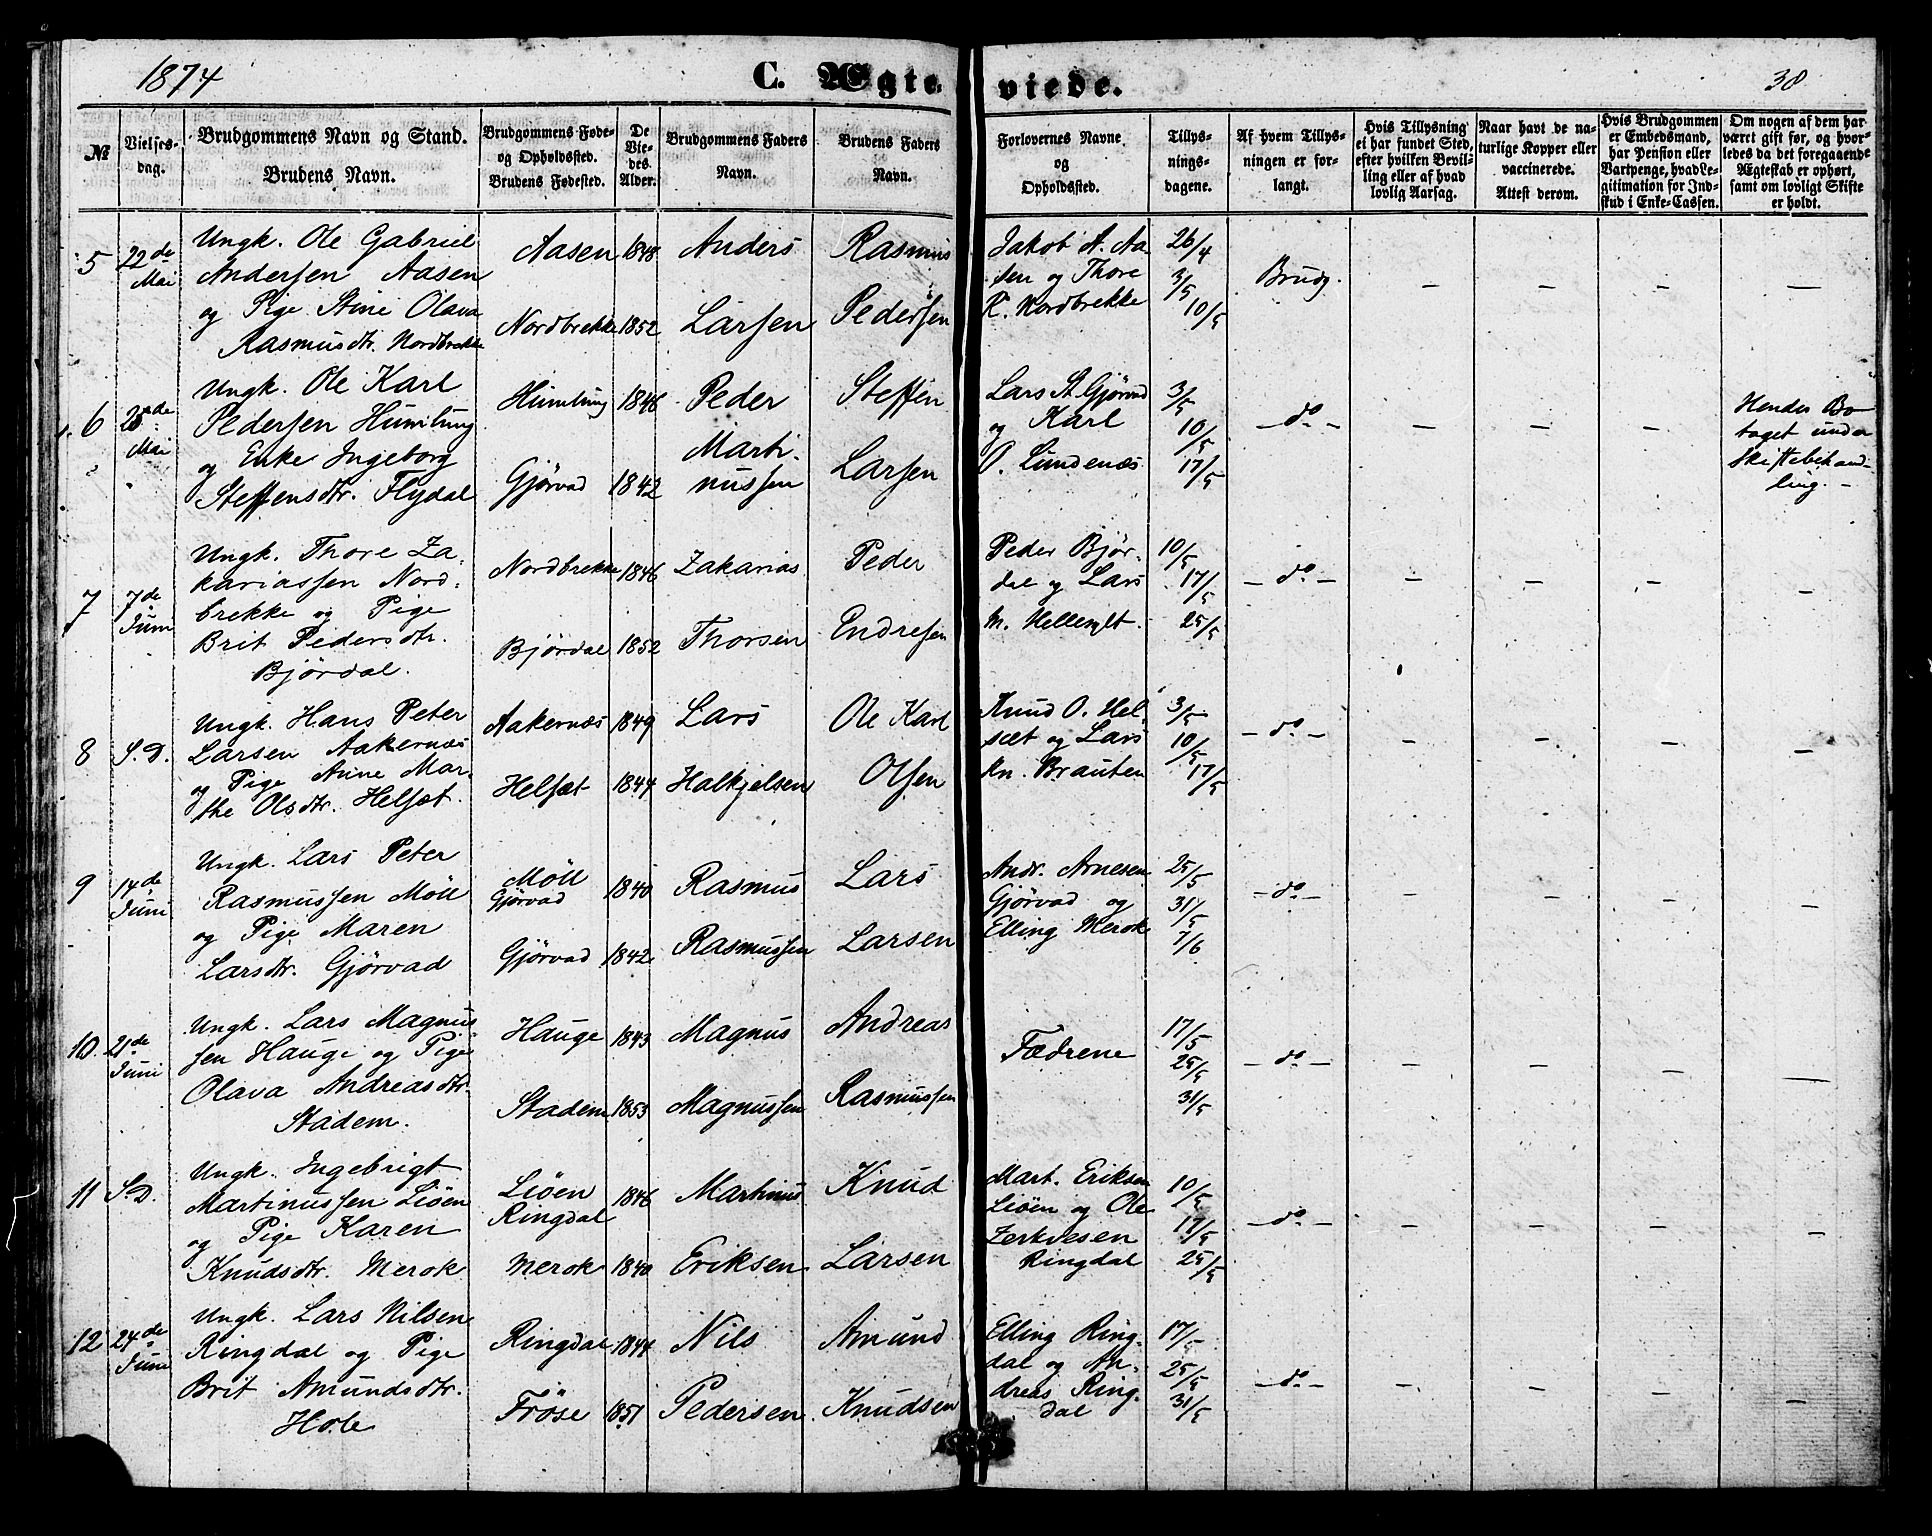 1874
C. Ægteviede.
38
№
Vielses-
dag.
Brudgommens Navn og Stand.
Brudens Navn.
Brudgommens Føde-
og Opholdssted.
Brudens Fødested.
De
Vie-
des
Alder.
Brudgommens Faders
Navn.
Brudens Faders
Navn.
Forlovernes Navne
og
Opholdssted.
Tillys-
nings-
dagene.
Af hvem Tillys-
ningen er for-
langt.
Hvis Tillysning
ei har fundet Sted,
efter hvilken Bevil-
ling eller af hvad
lovlig Aarsag.
Naar havt de na-
turlige Kopper eller
vaccinerede.
Attest derom.
Hvis Brudgommen
er Embedsmand,
har Pension eller
Vartpenge, hvad Le-
gitimation for Ind-
skud i Enke-Cassen.
Om nogen af dem har
været gift før, og hvor-
ledes da det foregaaende
Ægteskab er ophørt,
samt om lovligt Skifte
er holdt.
5
22de
Mai
Ungk. Ole Gabriel
Andersen Aasen
og Pige Stine Olava
Rasmusdtr. Nordbrekke
Aasen
Nordbrekke
1848
1852
Anders
Larsen
Rasmus
Pedersen
Jakob A. Aa-
sen og Thore
R. Nordbrekke
26/4
3/5
10/5
Brudg.
— — — —
6
28de
Mai
Ungk. Ole Karl
Pedersen Humlung
og Enke Ingeborg
Steffensdtr. Flydal
Humlung
Gjørvad
1846
1842
Peder
Marti-
nussen
Steffen
Larsen
Lars St. Gjørvad
og Karl
O. Lundenæs
3/5
10/5
17/5
— do —
— — —
Hendes Bo
taget under
Skiftebehand-
ling. —
7
7de
Juni
Ungk. Thore Za-
kariassen Nord-
brekke og Pige
Brit Pedersdtr.
Bjørdal.
Nordbrekke
Bjørdal
1846
1852
Zakarias
Thorsen
Peder
Endresen
Peder Bjør-
dal og Lars
M. Hellesylt.
10/5
17/5
25/5
— do —
— — — —
8
S. D.
Ungk. Hans Peter
Larsen Aakernæs
og Pige Anne Mar-
the Olsdtr. Helsæt.
Aakernæs
Helsæt
1849
1844
Lars
Halkjelsen
Ole Karl
Olsen
Knud O. Hel-
sæt og Lars
Kn. Brauten
3/5
10/5
17/5
— do —
— — — —
9
14de
Juni
Ungk. Lars Peter
Rasmussen Möll
og Pige Maren
Larsdtr. Gjørvad
Möll
Gjørvad
Gjørvad
1840
1842
Rasmus
Rasmussen
Lars
Larsen
Andr. Arnesen
Gjørvad og
Elling Merok
25/5
31/5
7/6
— do —
— — — —
10.
21de
Juni
Ungk. Lars Magnus-
sen Hauge og Pige
Olava Andreasdtr.
Stadem.
Hauge
Stadem
1843
1853
Magnus
Magnussen
Andreas
Rasmussen
Fædrene
17/5
25/5
31/5
— do —
— — — —
11
S. D.
Ungk. Ingebrigt
Martinussen Liöen
og Pige Karen
Knudsdtr. Merok
Liöen
Ringdal
Merok
1846
1840
Martinus
Eriksen
Knud
Larsen
Mart. Eriksen
Liöen og Ole
Ringdal
10/5
17/5
25/5
— do —
— — — —
12
24de
Juni
Ungk. Lars Nilsen
Ringdal og Pige
Brit Amundsdtr.
Hole
Ringdal
Fröse
1844
1851
Nils
Pedersen
Amund
Knudsen
Elling Ring-
dal og An-
dreas Ring-
dal
17/5
25/5
31/5
— do —
— — — —